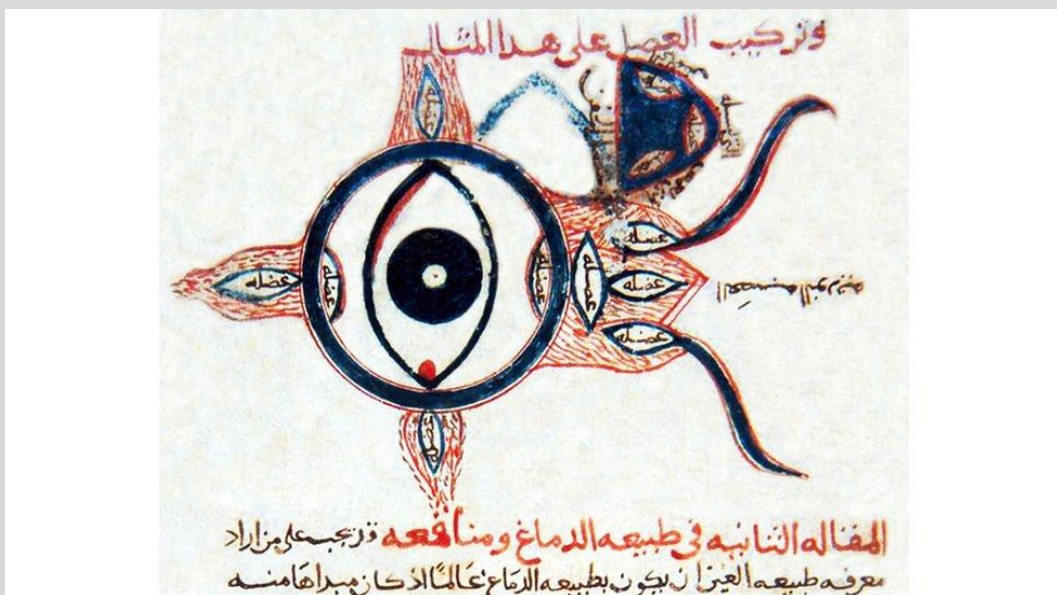 وتركيب العضل على هذا المثال
عضله
عضله
عضله
عضله
عضله
عضله
عضله
عضله
المقاله الثانيه فى طبيعه الدماغ ومنافعه قد يجب على من اراد
معرفه طبيعه العين ان يكون بطبيعه الدماغ عالمًا اذ كان مبداها منه